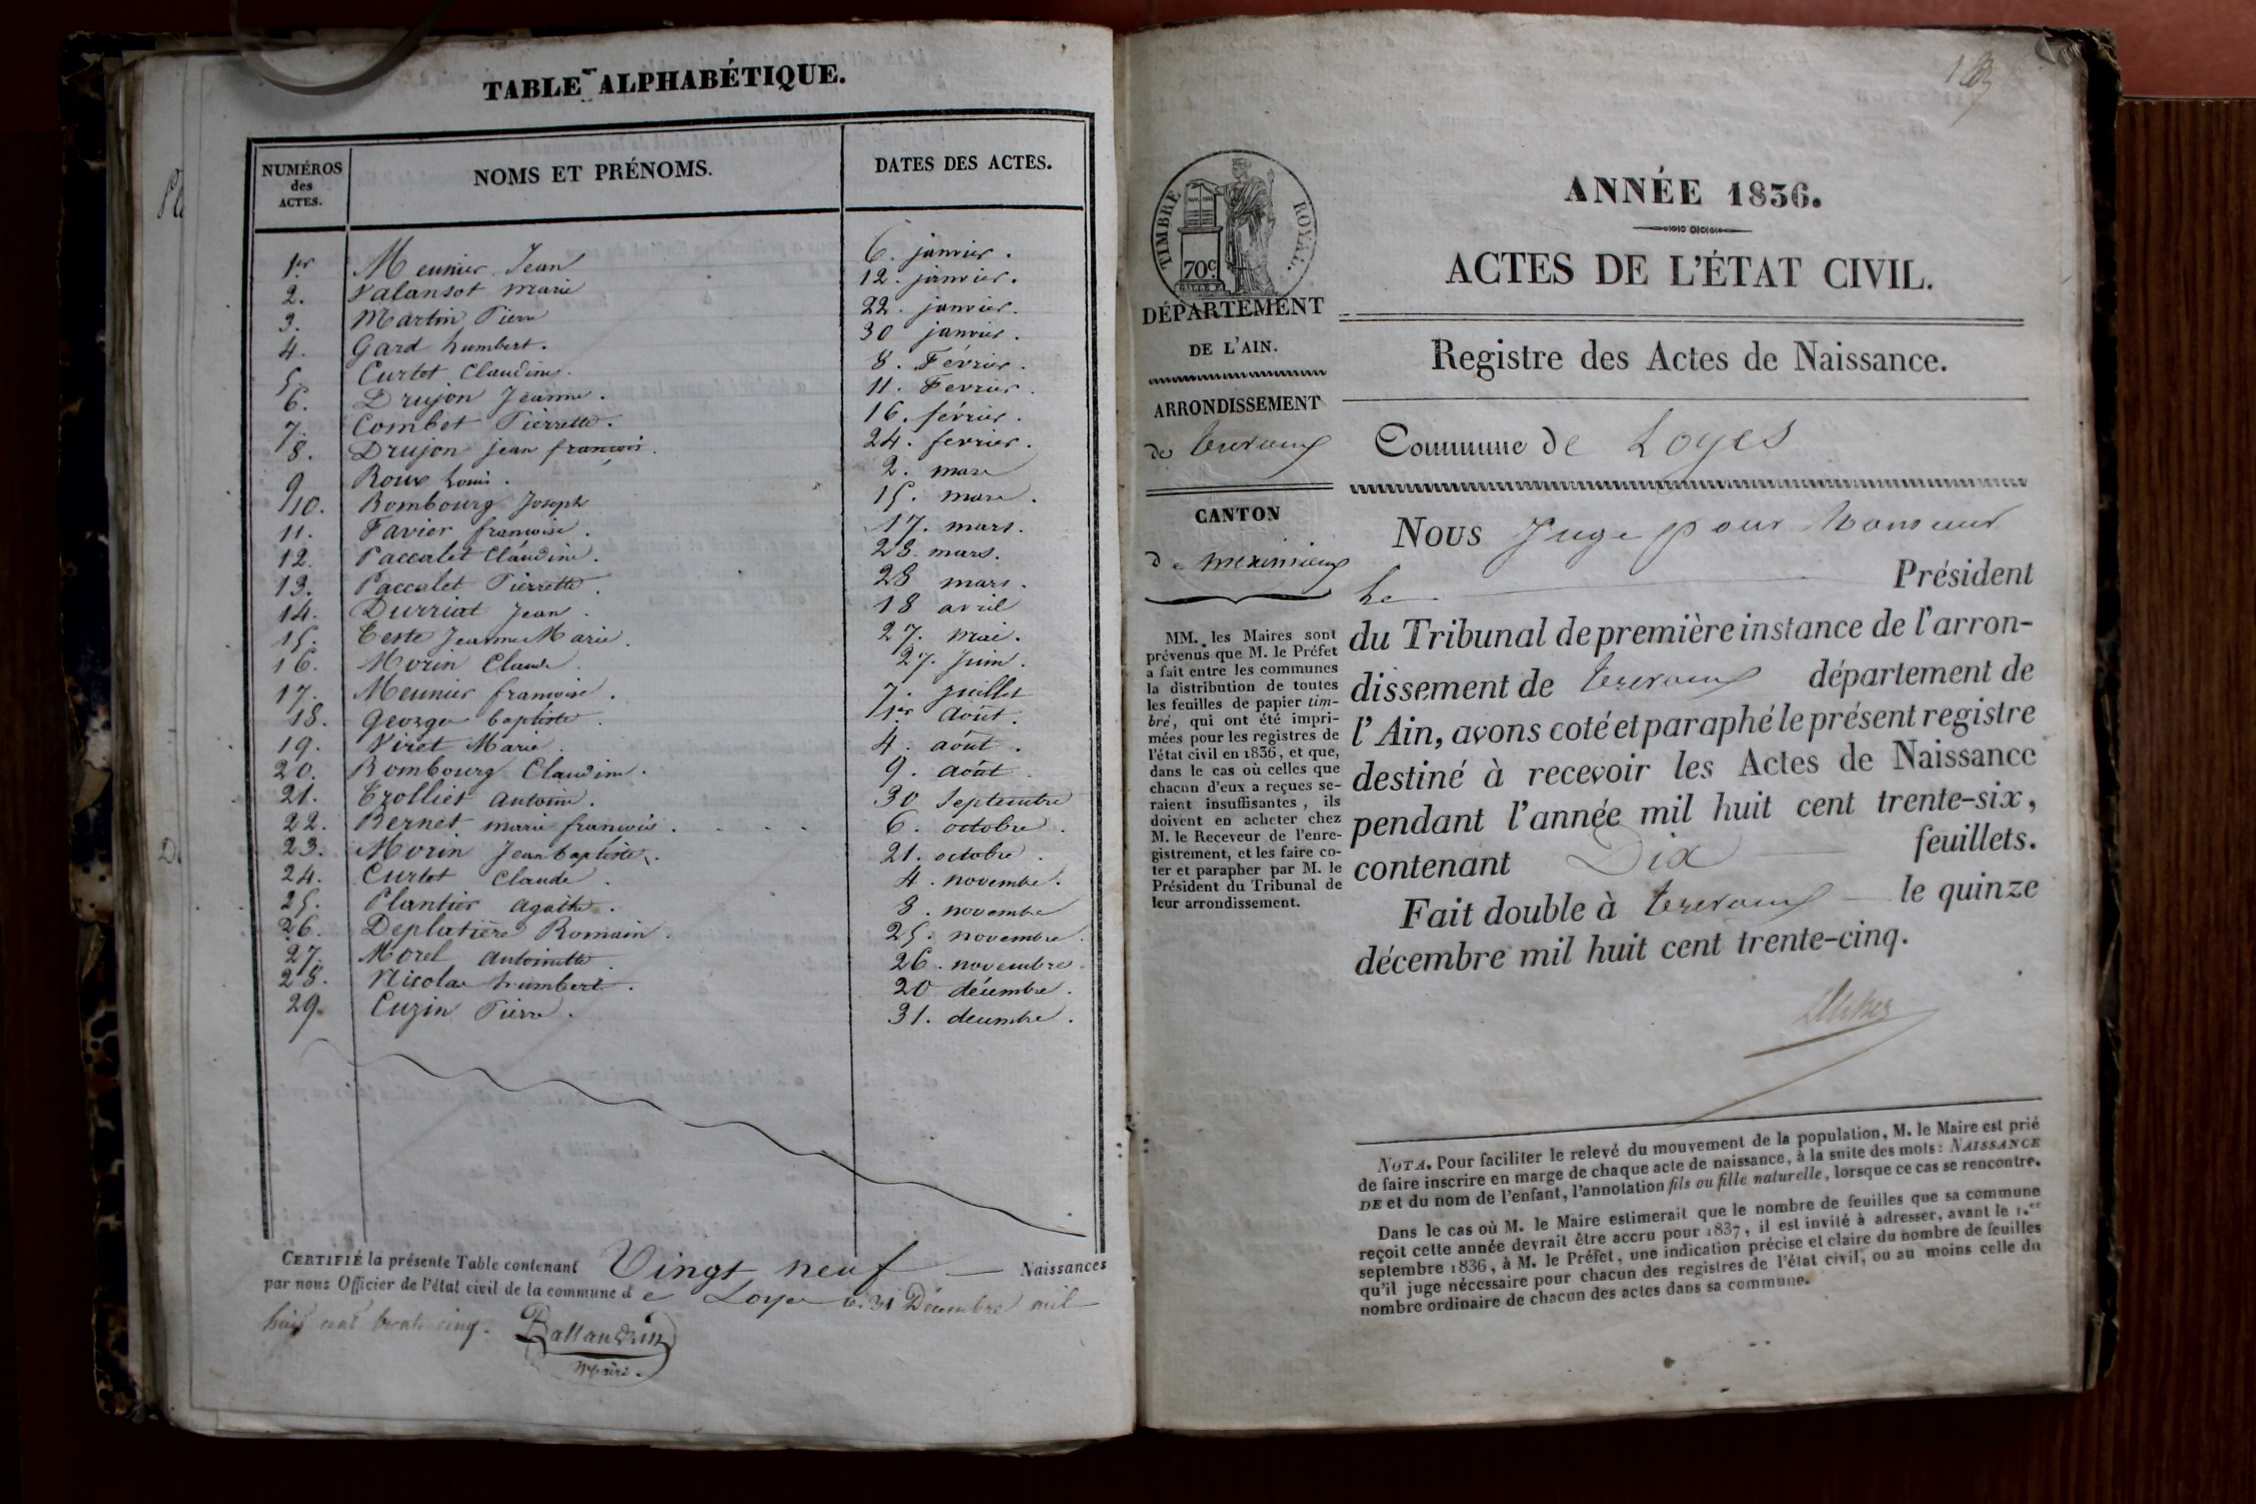 TABLE ALPHABÉTIQUE.
NUMÉROS des ACTES. NOMS ET PRÉNOMS. DATES DES ACTES.
1er Meunier Jean 6. janvier.
2. Valansot marie 12. janvier.
3. Martin Pierre 22. janvier.
4. Gard humbert. 30 janvier.
5. Curtet Claudine. 8. Février.
6. Drujon Jeanne. 11. Fevrier.
7. Combet Pierrette. 16. février.
8. Drujon jean françois. 24. fevrier.
9 Roux Louis. 2. mars
10. Rombourg Joseph 15. mars.
11. Favier françoise. 17. mars.
12. Paccalet Claudine. 23. mars.
13. Paccalet Pierrette. 28 mars.
14. Durriat Jean. 18 avril
15. Teste Jeanne Marie. 27. mai.
16. Morin Claude. 27. Juin.
17. Meunier françoise. 7. juillet
18. George baptiste. 1er Août.
19. Viret Marie. 4. août.
20. Rombourg Claudine. 9. août.
21. Trollier Antoine. 30 Septembre
22. Bernet marie françois. 6. octobre.
23. Morin Jean baptiste. 21. octobre.
24. Curtet Claude. 4. novembre.
25. Plantier agathe. 8. novembre
26. Deplatière Romain. 25. novembre.
27. Morel Antoinette. 26. novembre.
28. Nicolas humbert. 20 décembre.
29. Cuzin Pierre. 31. decembre.
CERTIFIÉ la présente Table contenant Vingt neuf Naissances
par nous Officier de l'état civil de la commune de Loyes le 31 Décembre mil
huit cent trente cinq. Ballandrin
Maire.
TIMBRE ROYAL.
70c
DÉPARTEMENT
DE L'AIN.
ARRONDISSEMENT
de trevoux
CANTON
de meximieux
MM. les Maires sont
prévenus que M. le Préfet
a fait entre les communes
la distribution de toutes
les feuilles de papier tim-
bré, qui ont été impri-
mées pour les registres de
l'état civil en 1836, et que,
dans le cas où celles que
chacun d'eux a reçues se-
raient insuffisantes, ils
doivent en acheter chez
M. le Receveur de l'enre-
gistrement, et les faire co-
ter et parapher par M. le
Président du Tribunal de
leur arrondissement.
ANNÉE 1836.
ACTES DE L'ÉTAT CIVIL.
Registre des Actes de Naissance.
Commune de Loyes
Nous Juge pour Monsieur
Le Président
du Tribunal de première instance de l'arron-
dissement de trevoux département de
l'Ain, avons coté et paraphé le présent registre
destiné à recevoir les Actes de Naissance
pendant l'année mil huit cent trente-six,
contenant Dix feuillets.
Fait double à trevoux le quinze
décembre mil huit cent trente-cinq.
NOTA. Pour faciliter le relevé du mouvement de la population, M. le Maire est prié
de faire inscrire en marge de chaque acte de naissance, à la suite des mots: NAISSANCE
DE et du nom de l'enfant, l'annotation fils ou fille naturelle, lorsque ce cas se rencontre.
Dans le cas où M. le Maire estimerait que le nombre de feuilles que sa commune
reçoit cette année devrait être accru pour 1837, il est invité à adresser, avant le 1.er
septembre 1836, à M. le Préfet, une indication précise et claire du nombre de feuilles
qu'il juge nécessaire pour chacun des registres de l'état civil, ou au moins celle du
nombre ordinaire de chacun des actes dans sa commune.